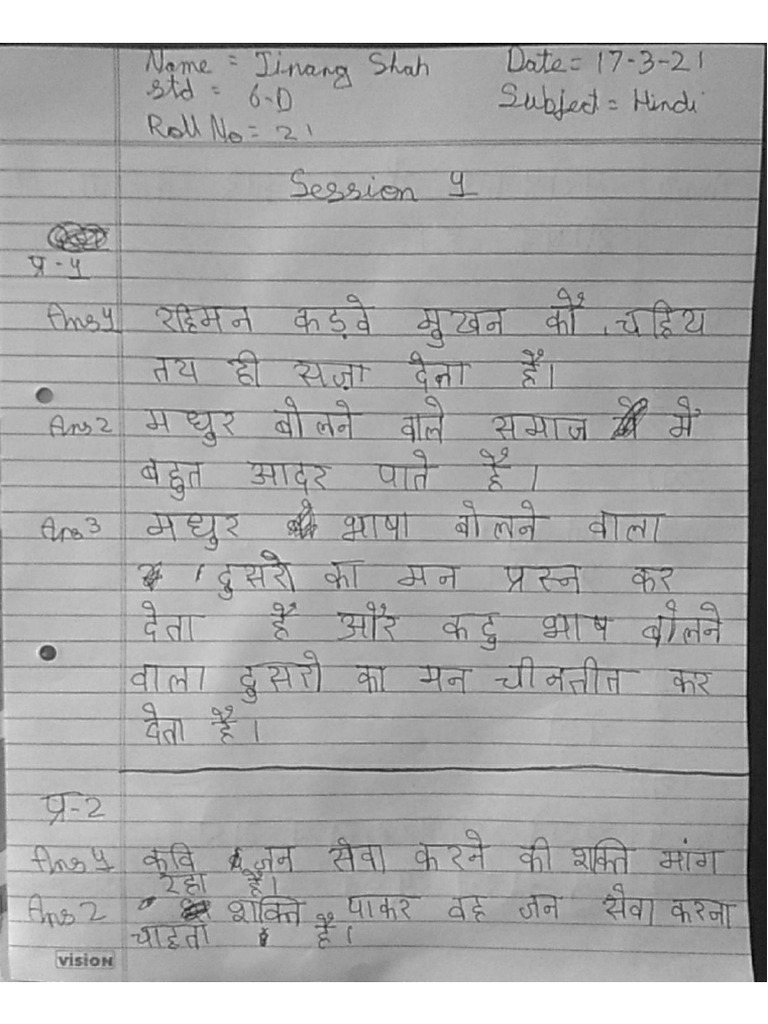 Name = Jinang Shah Date = 17-3-21
Std = 6-D Subject = Hindi
Roll No = 21
Session 1
प्र-1
Ans 1 रहिमन कड़वे मुखन कौं, चहिय
तय ही सज़ा देना है।
Ans 2 मधुर बोलने वाले समाज में
बहुत आदर पाते है।
Ans 3 मधुर भाषा बोलने वाला
दुसरो का मन प्रस्न कर
देता है और कदु भाष बोलने
वाला दुसरो का मन चीनतीत कर
देता है।
प्र-2
Ans 1 कवि जन सेवा करने की शक्ति मांग
रहा है।
Ans 2 शक्ति पाकर वह जन सेवा करना
चाहता है।
vision